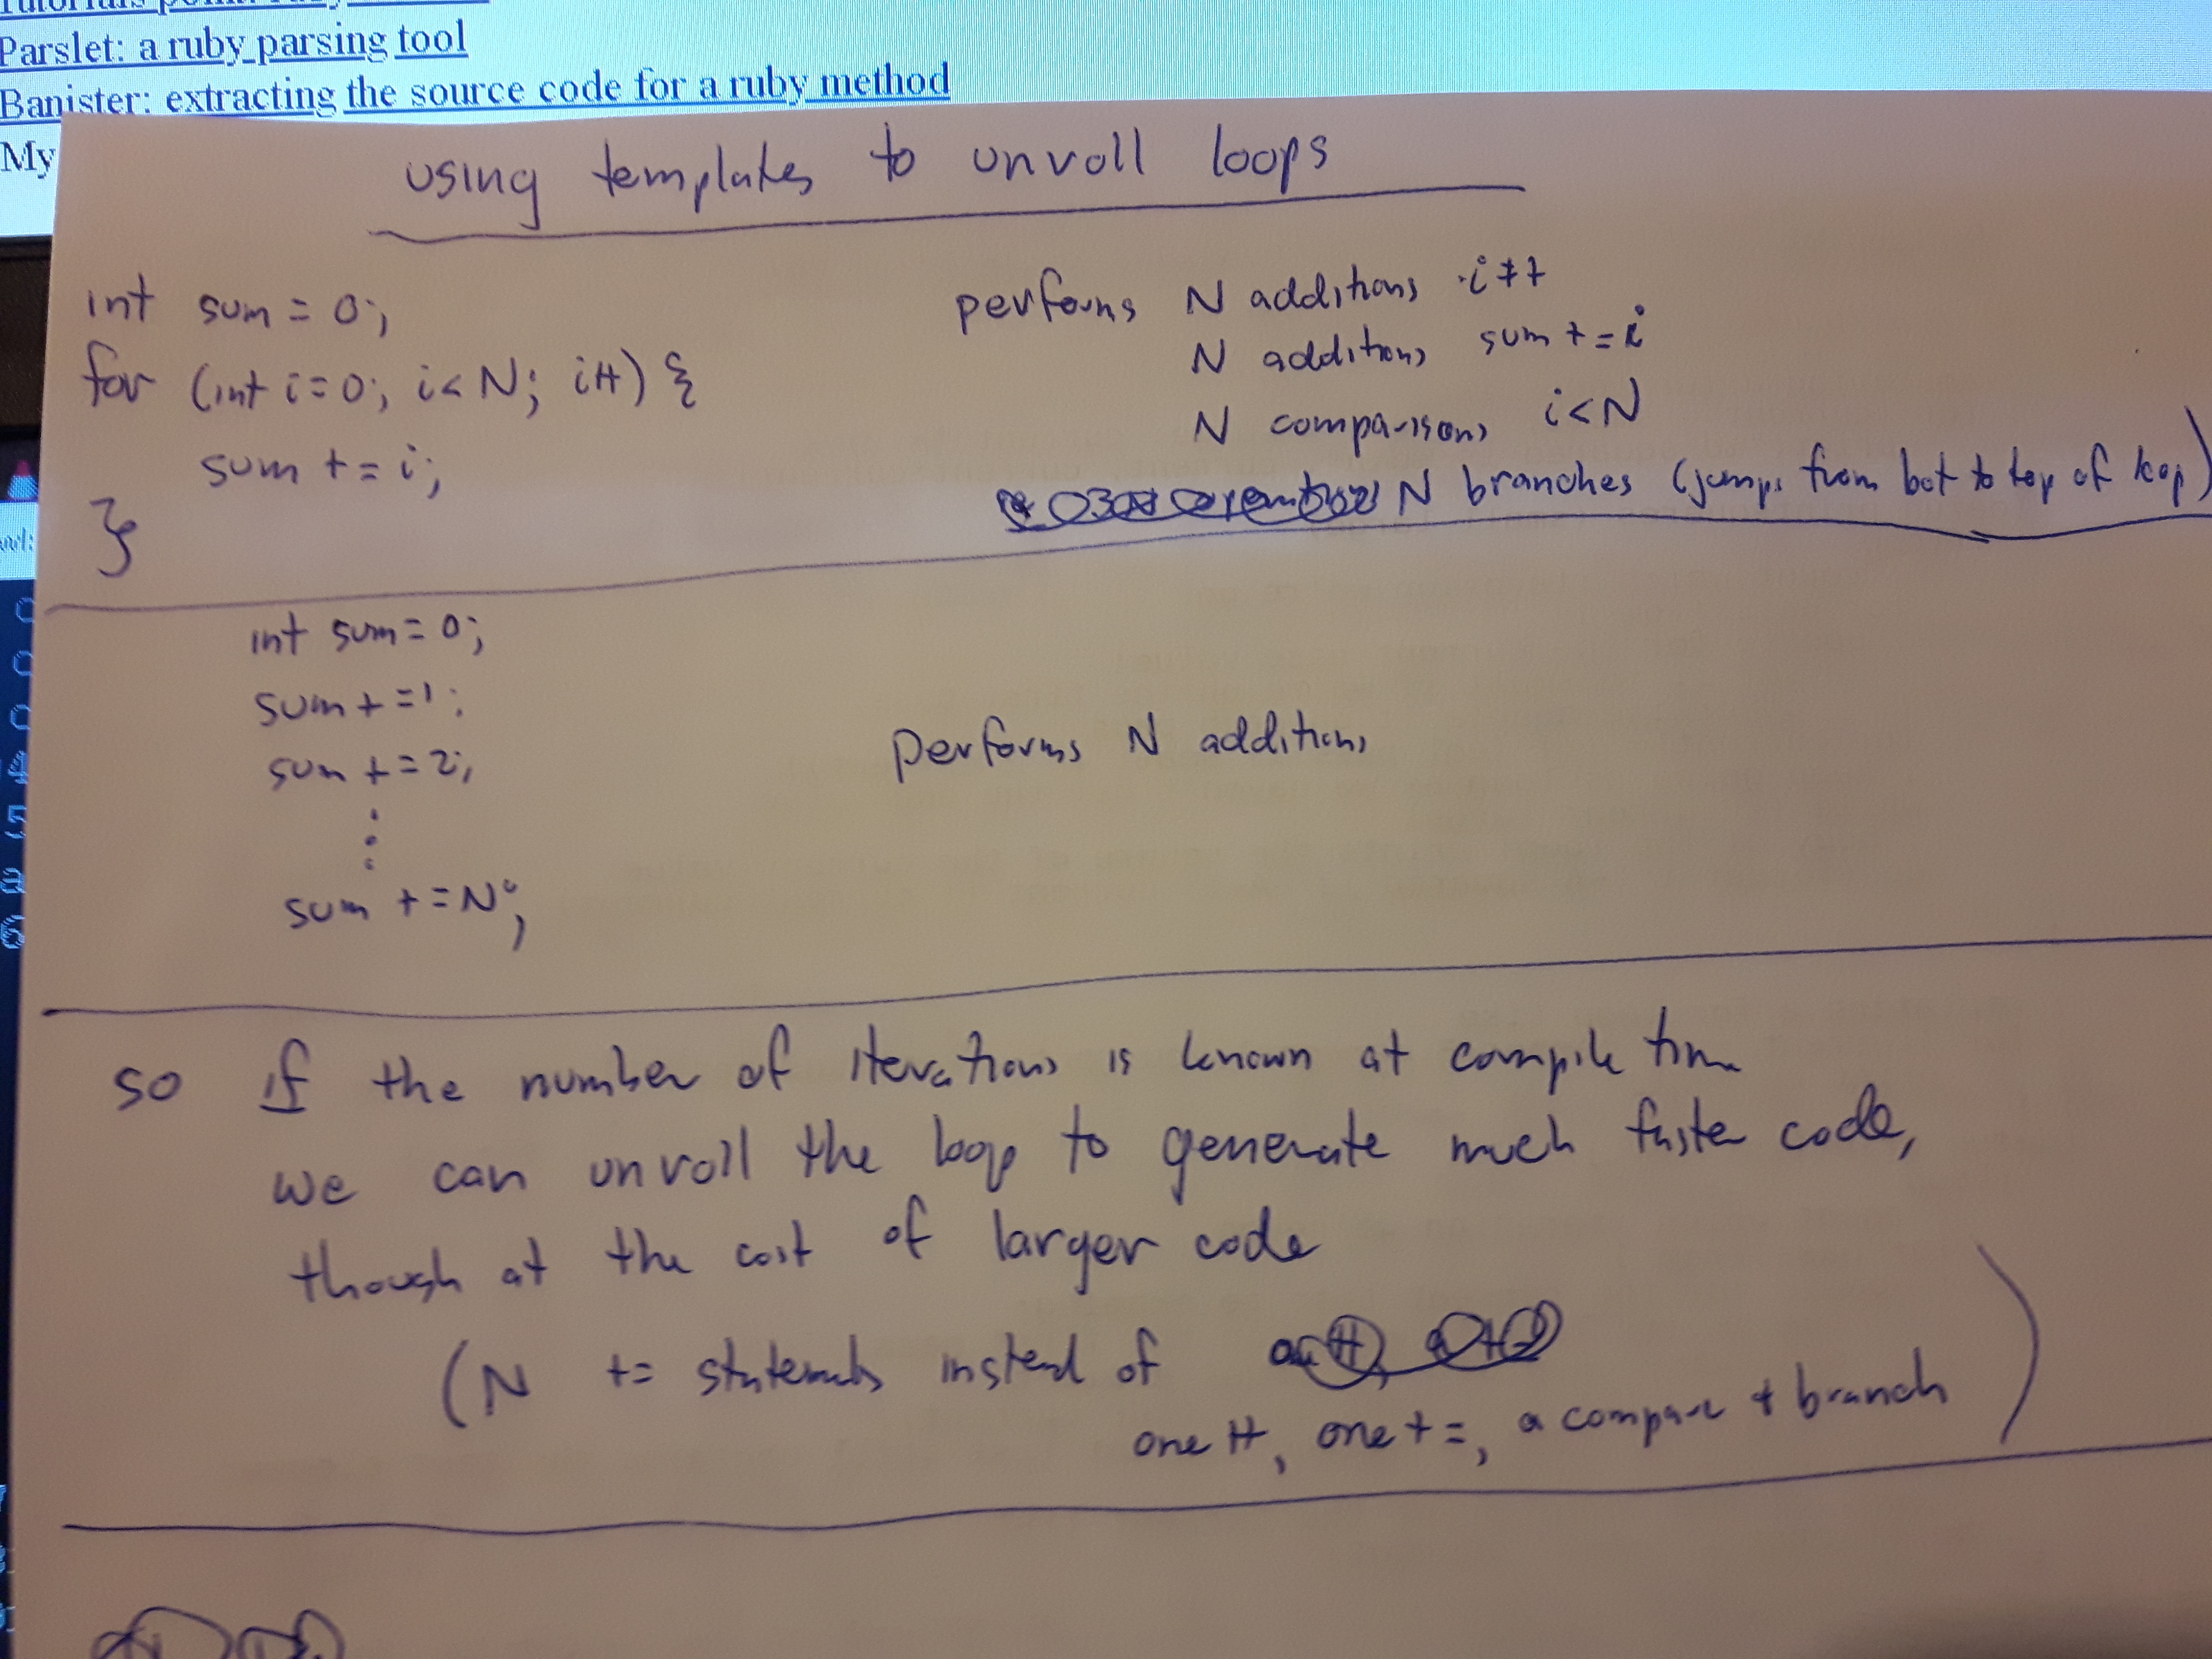 Parslet: a ruby parsing tool
Banister: extracting the source code for a ruby method
My
using templates to unroll loops
int sum = 0;
for (int i=0; i<N; i++) {
sum += i;
}
performs N additions i++
N additions sum += i
N comparisons i<N
N branches (jumps from bot to top of loop)
int sum = 0;
sum += 1;
sum += 2;
⋮
sum += N;
performs N additions
so if the number of iterations is known at compile time
we can unroll the loop to generate much faster code,
though at the cost of larger code
(N += statements instead of
one ++, one +=, a compare + branch)